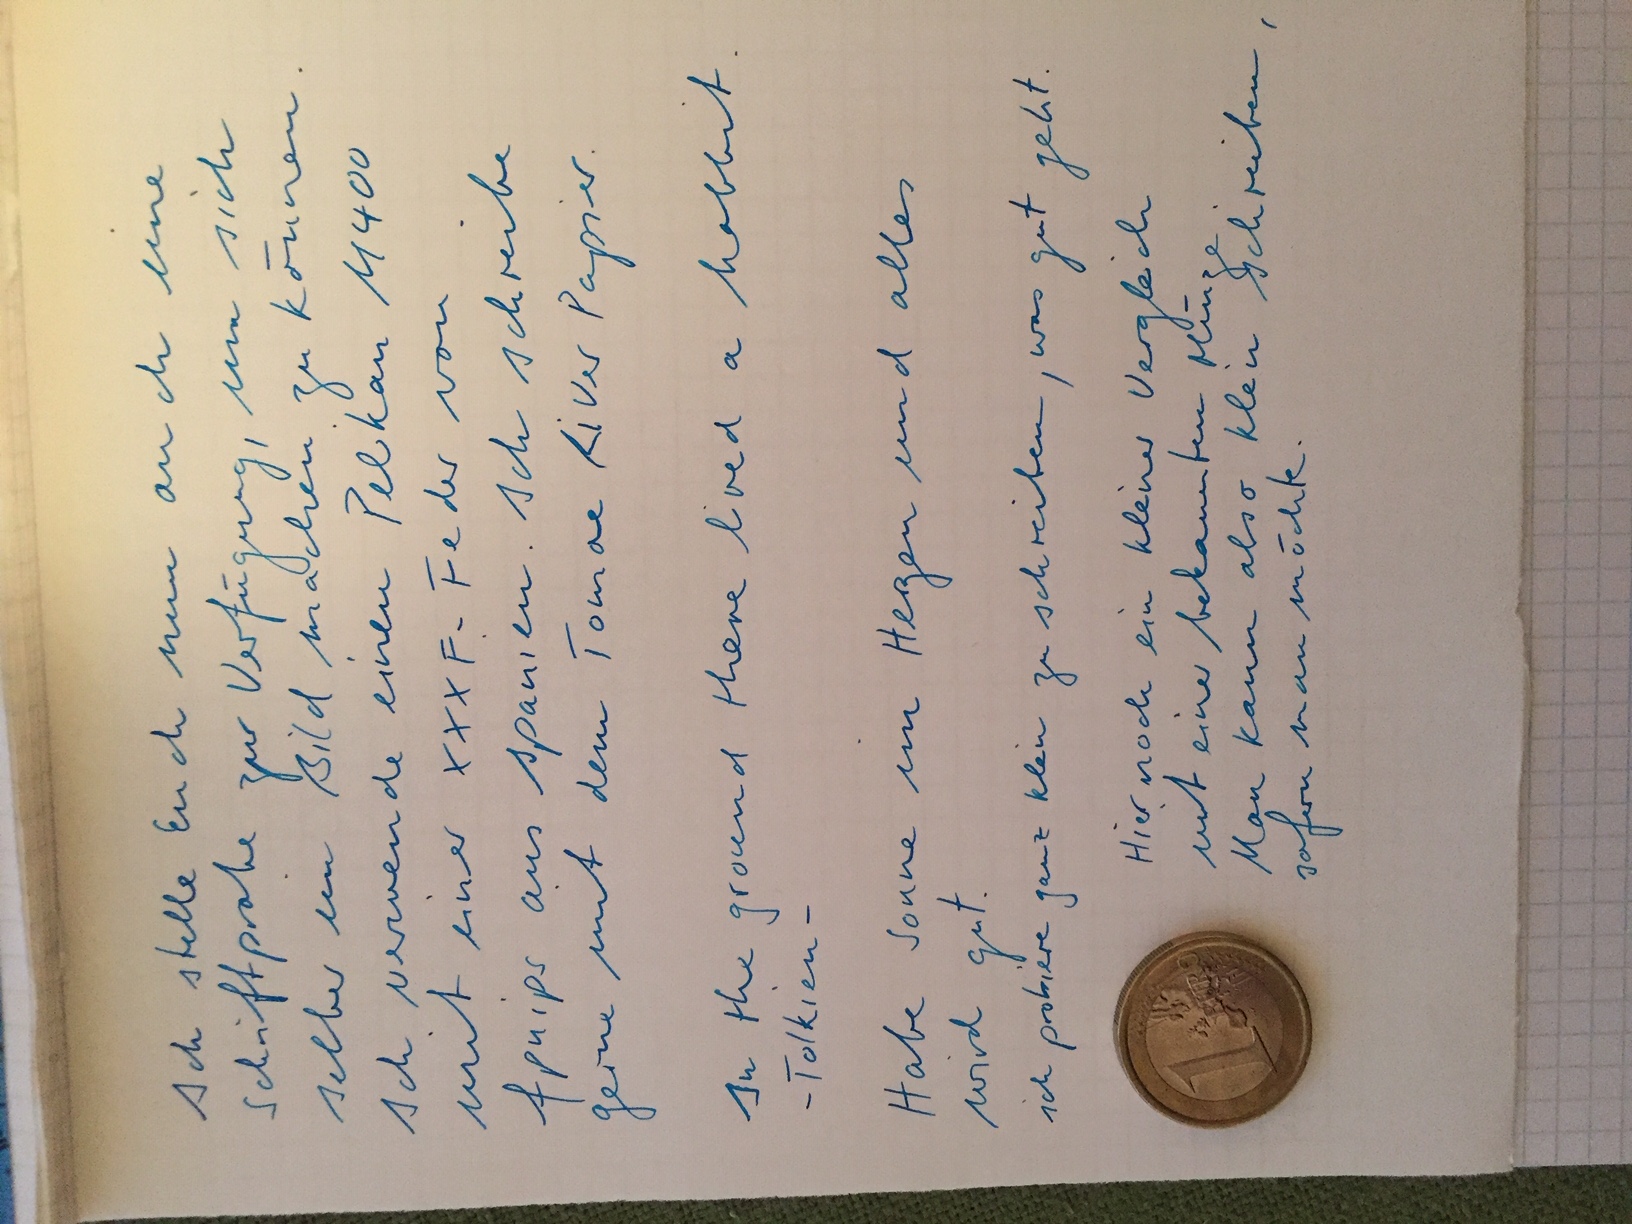 Ich stelle Euch nun auch eine
Schriftprobe zur Verfügung, um sich
selber ein Bild machen zu können.
Ich verwende einen Pelikan M400
mit einer XXXF-Feder von
fpnibs aus Spanien. Ich schreibe
gerne mit dem Tomoe River Papier.
In the ground there lived a hobbit.
-Tolkien-
Habe Sonne im Herzen und alles
wird gut.
ich probiere ganz klein zu schreiben, was gut geht.
Hier noch ein kleiner Vergleich
mit einer bekannten Münze.
Man kann also klein schreiben,
sofern man möchte.
1